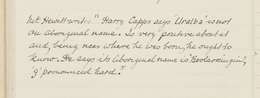 Net Hewitt writes "Harry Capps says Uralba is not
an Aboriginal name. Is very positive about it
and, being near where he was born, he ought to
know. He says its Aboriginal name is
'g' pronounced hard."